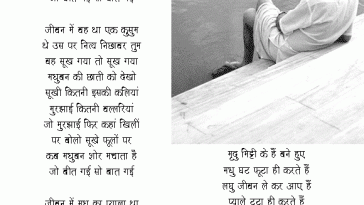 जो बीत गई सो बात गई
जीवन में वह था एक कुसुम
थे उस पर नित्य निछावर तुम
वह सूख गया तो सूख गया
मधुबन की छाती को देखो
सूखी कितनी इसकी कलियां
मुरझाई कितनी बल्लरियां
जो मुरझाई फिर कहां खिलीं
पर बोलो सूखे फूलों पर
कब मधुबन शोर मचाता है
जो बीत गई सो बात गई
जीवन में मधु का प्याला था
मृदु मिट्टी के हैं बने हुए
मधु घट फूटा ही करते हैं
लघु जीवन ले कर आए हैं
प्याले टूटा ही करते हैं